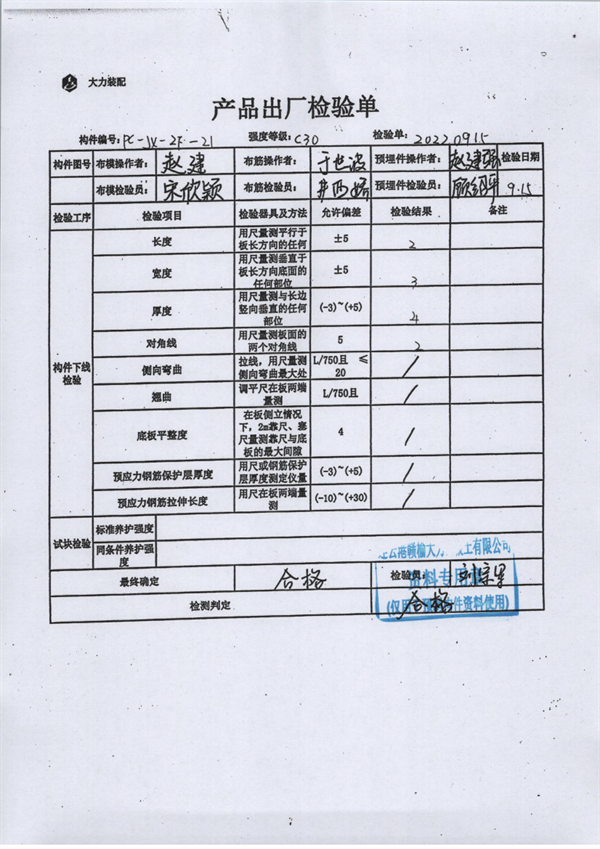 大力装配
产品出厂检验单
构件编号: PC-JX-2F-21 强度等级: C30 检验单: 20220915
构件图号 布模操作者: 赵建 布筋操作者: 预埋件操作者: 赵建强 检验日期
布模检验员: 宋欣颖 布筋检验员: 预埋件检验员: 9.15
检验工序 检验项目 检验器具及方法 允许偏差 检验结果 备注
构件下线检验
长度 用尺量测平行于板长方向的任何 ±5 2
宽度 用尺量测垂直于板长方向底面的任何部位 ±5 3
厚度 用尺量测与长边竖向垂直的任何部位 (-3)~(+5) 4
对角线 用尺量测板面的两个对角线 5 2
侧向弯曲 拉线，用尺量测侧向弯曲最大处 L/750且 ≤20 /
翘曲 调平尺在板两端量测 L/750且 /
底板平整度 在板侧立情况下，2m靠尺、塞尺量测靠尺与底板的最大间隙 4 /
预应力钢筋保护层厚度 用尺或钢筋保护层厚度测定仪量 (-3)~(+5) /
预应力钢筋拉伸长度 用尺在板两端量测 (-10)~(+30) /
试块检验 标准养护强度
同条件养护强度
最终确定 合格 检验员:
检测判定 合格
连云港赣榆大力 土有限公司
资料专用
(仅用 件资料使用)